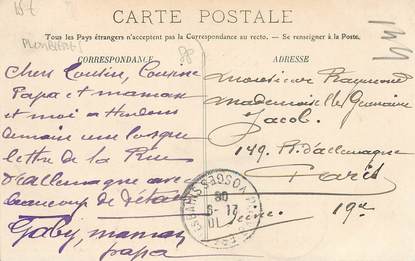 CARTE POSTALE
Tous les Pays étrangers n'acceptent pas la Correspondance au recto. — Se renseigner à la Poste.
PLOMBIERES
CORRESPONDANCE
Chers Cousin, Cousine
Papa et maman
et moi attendons
demain une longue
lettre de la Rue
d'allemagne avec
beaucoup de détails
Gaby, maman,
papa
ADRESSE
Monsieur Raymond
Mademoiselle Germaine
Jacob
149 R. d'allemagne
Paris
Seine. 19e
VOSGES
21 - 9
08
149